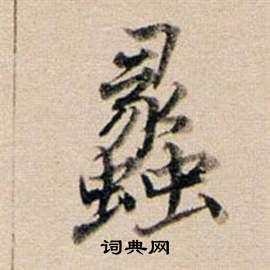 蠡
词典网